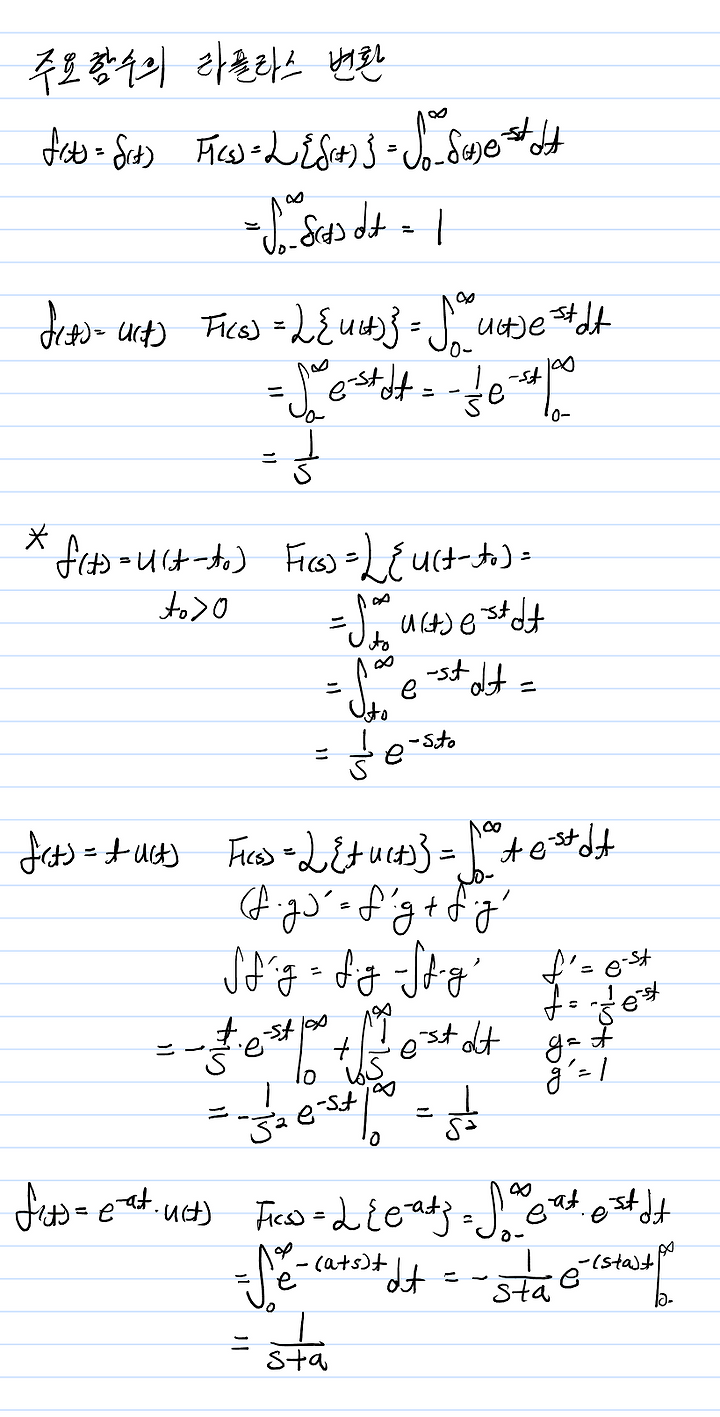 주요함수의 라플라스 변환
f(t) = δ(t) F(s) = L{δ(t)} = ∫₀₋^∞ δ(t)e^-st dt
= ∫₀₋^∞ δ(t) dt = 1
f(t) = u(t) F(s) = L{u(t)} = ∫₀₋^∞ u(t)e^-st dt
= ∫₀₋^∞ e^-st dt = -1/s e^-st |₀₋^∞
= 1/s
* f(t) = u(t-t₀) F(s) = L{u(t-t₀) =
t₀>0 = ∫_t₀^∞ u(t) e^-st dt
= ∫_t₀^∞ e^-st dt =
= 1/s e^-st₀
f(t) = t u(t) F(s) = L{t u(t)} = ∫₀₋^∞ t e^-st dt
(f·g)' = f'·g + f·g'
∫f'·g = f·g - ∫f·g' f' = e^-st
f = -1/s e^-st
= -t/s · e^-st |₀^∞ + ∫₀^∞ 1/s e^-st dt g = t
g' = 1
= -1/s² e^-st |₀^∞ = 1/s²
f(t) = e^-at · u(t) F(s) = L{e^-at} = ∫₀₋^∞ e^-at · e^-st dt
= ∫₀^∞ e^-(a+s)t dt = -1/(s+a) e^-(s+a)t |₀₋^∞
= 1/(s+a)